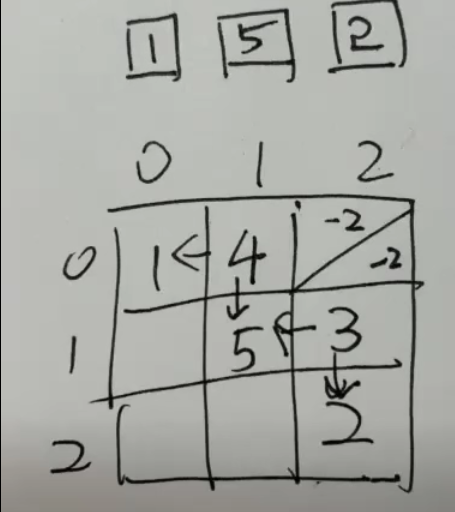 1 5 2
0 1 2
0 1 ← 4 -2 -2
↓
1 5 ← 3
↓
2 2